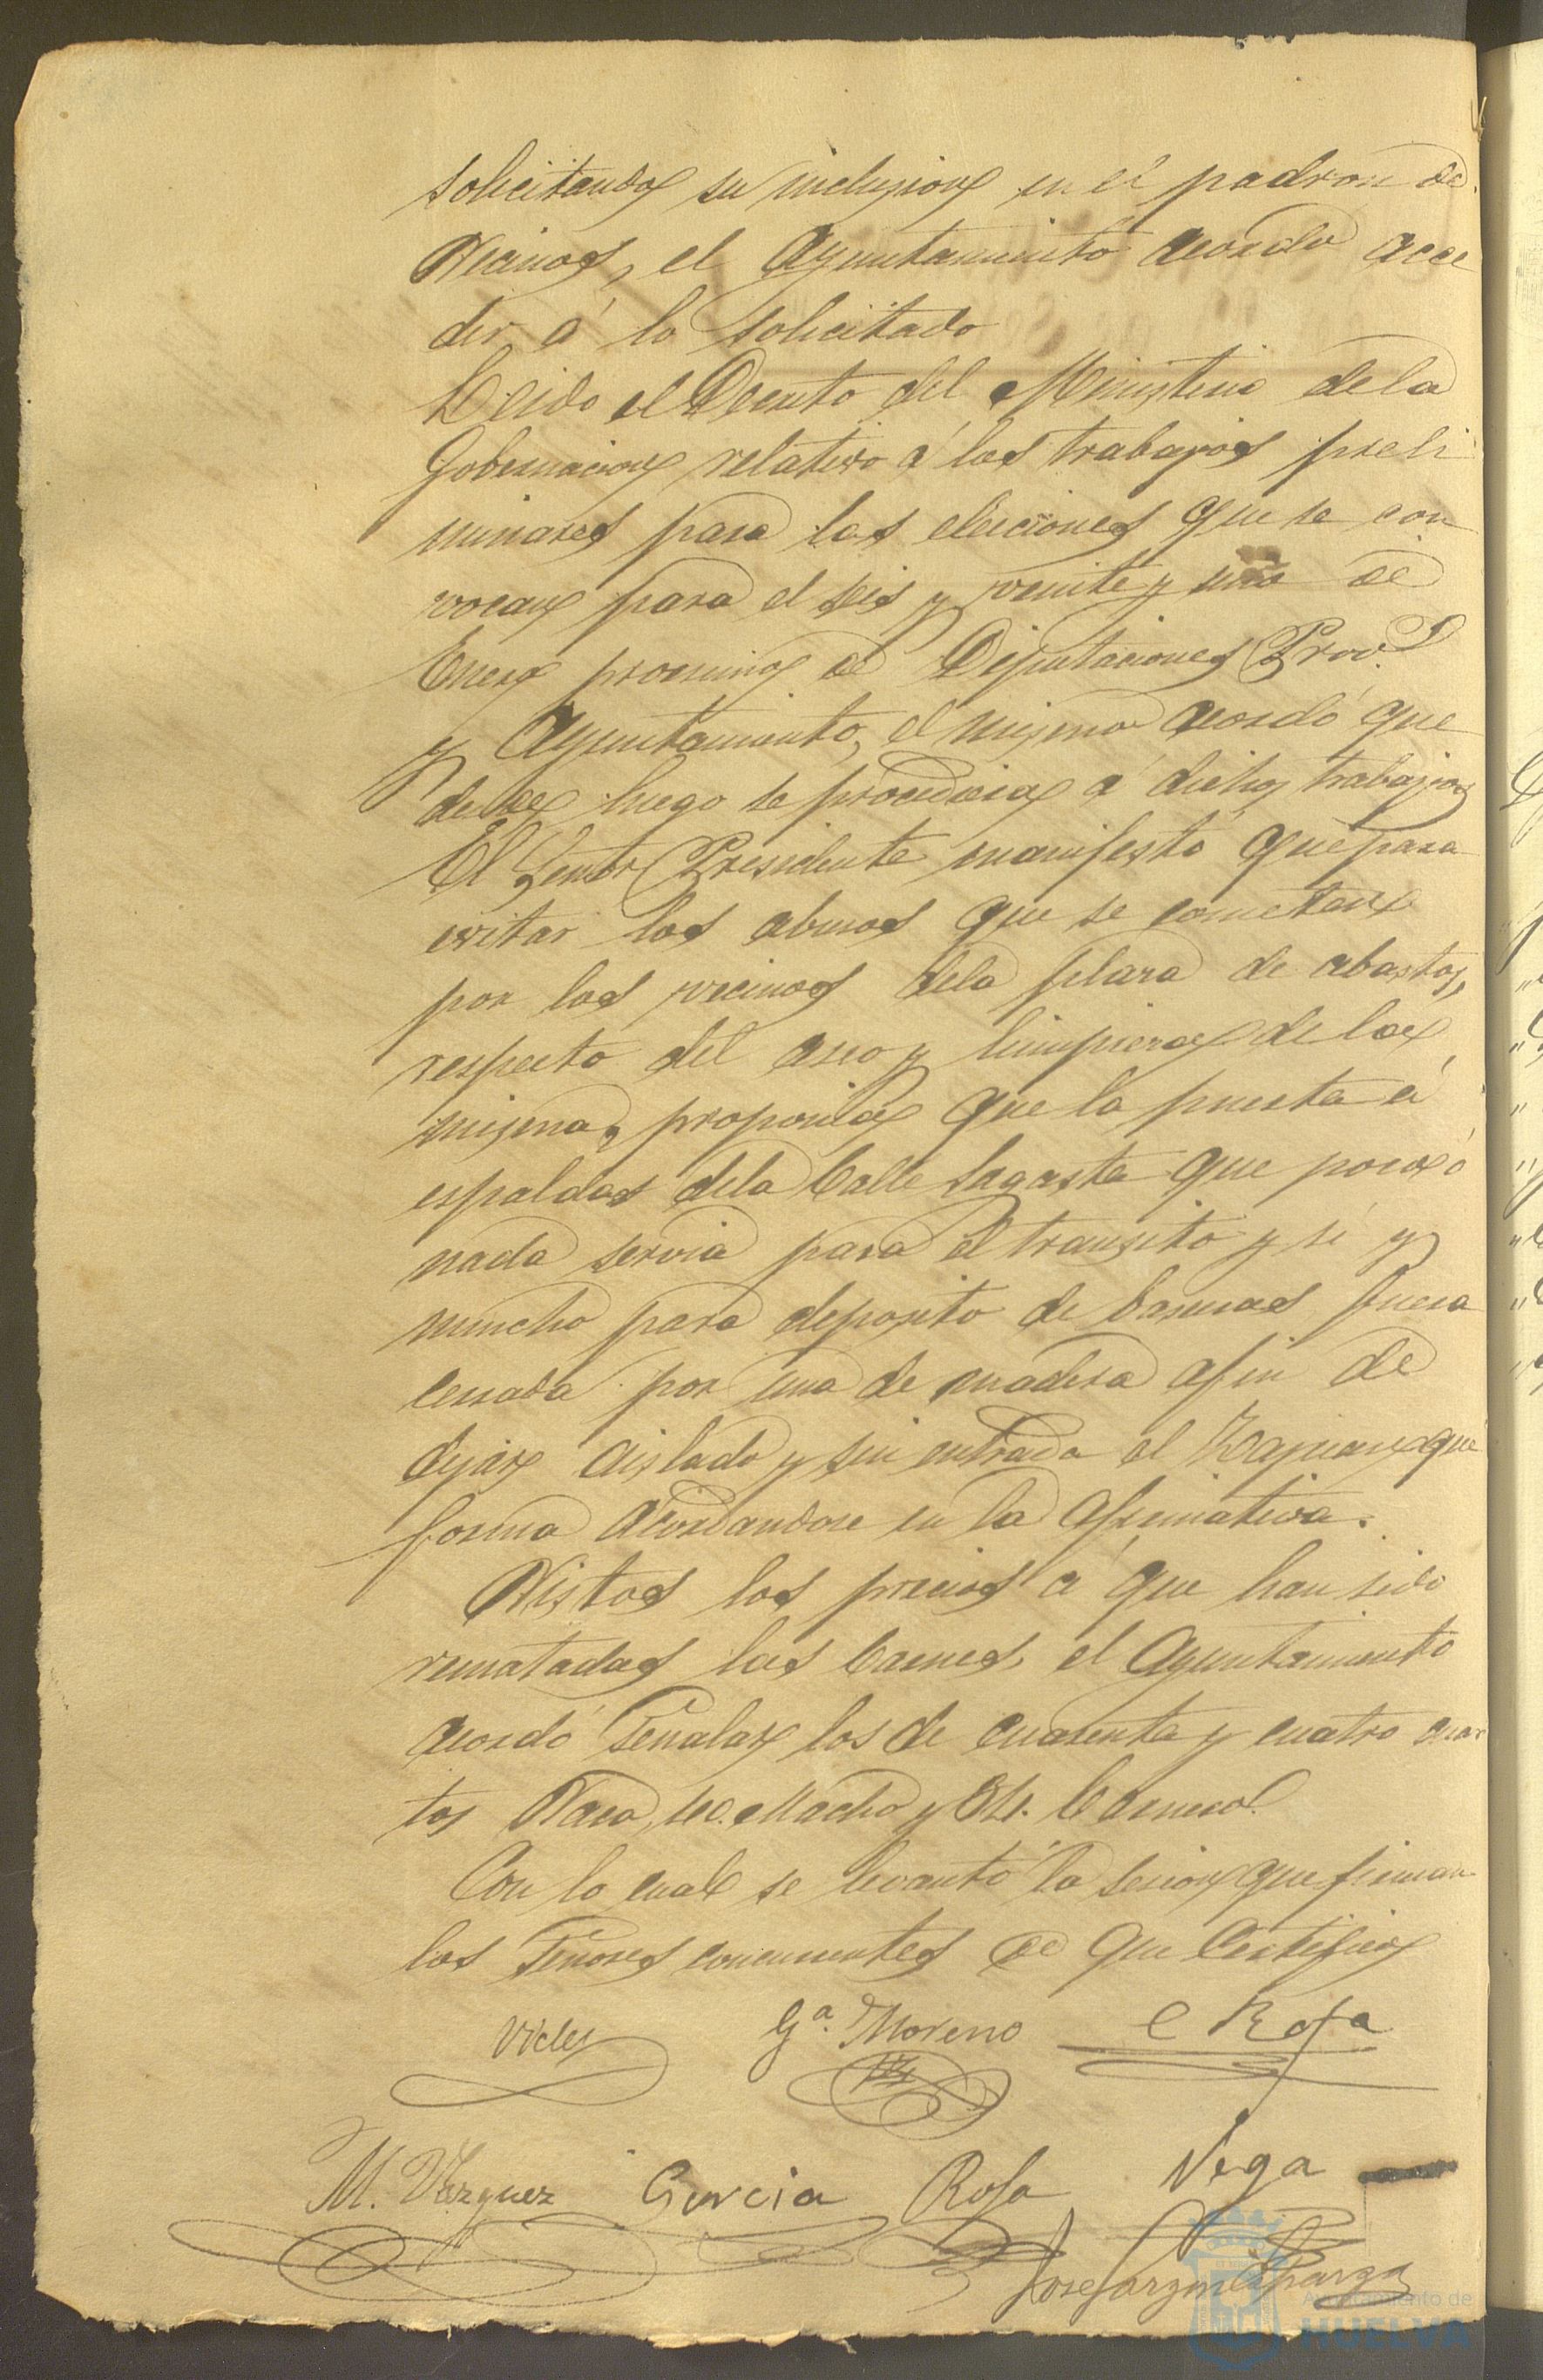 solicitando su inclusion en el padron de
Vecinos, el Ayuntamiento acordo acce
der á lo solicitado
Leido el Decreto del Ministerio dela
Gobernacion relativo á los trabajos preli
minares para las elecciones que se con
vocan para el seis y veinte y uno de
Enero procsimo de Diputaciones Prov.s
y Ayuntamiento, el mismo acordó que
desde luego se procediera á dichos trabajos
El Señor Presidente manifestó que para
evitar los abusos que se cometen
por los vecinos dela plaza de abastos,
respecto del aseo y limpieza de la
misma, proponia que la puerta á
espaldas dela Calle Sagasta que poco ó
nada servia para el transito y si y
mucho para deposito de basuras fuera
cerrada por una de madera afin de
dejar aislado y sin entrada el Zaguan que
forma acordandose en la afirmativa.
Vistos los precios á que han sido
rematadas las Carnes, el Ayuntamiento
acordó señalar los de cuarenta y cuatro cuar
tos Vaca, Macho y Carnero.
Con lo cual se levantó la sesion que firman
los Señores concurrentes de que Certifico
Gª. Moreno
M. Vazquez Garcia Rosa Vega
Ayuntamiento de
HUELVA